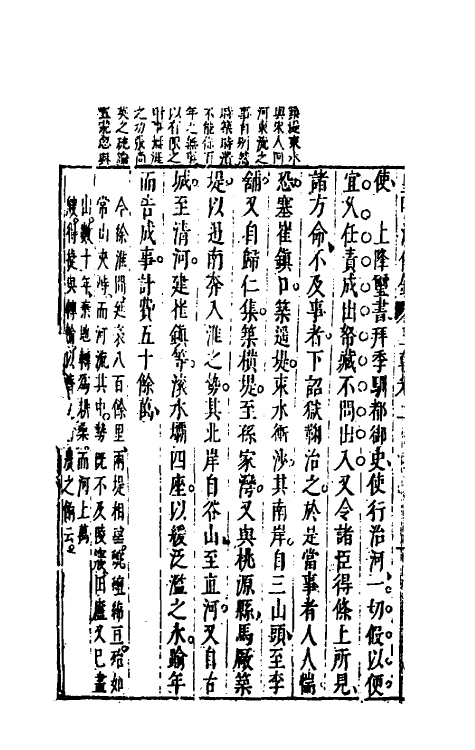 築堤束水
與宋人同
河東流之
事自別然
不能保百
年之無
以有限之
之功張尚
英之疏論
使　上降璽書拜季馴都御史使行治河一切假以便
宜久任責成出帑藏不問出入又令諸臣得條上所見
諸方命不及事者下詔獄鞠治之於是當事者人人惴
恐塞崔鎮口築遥堤束水衝沙其南岸自三山頭至李
舖又自歸仁集築橫堤至孫家灣又與桃源縣馬厰築
堤以逼南奔入淮之勢其北岸自谷山至直河又自古
城至清河建崔鎮等滾水壩四座以緩泛濫之水踰年
而告成事計費五十餘萬
今徐淮間延袤八百餘里兩堤相望蜿蟺綿亘殆如
常山夾峙而河流其中勢既不及陵寢田廬又已盡
出數十年棄地轉為耕桑而河上萬
艘得捷與轉輸以濟農之備云